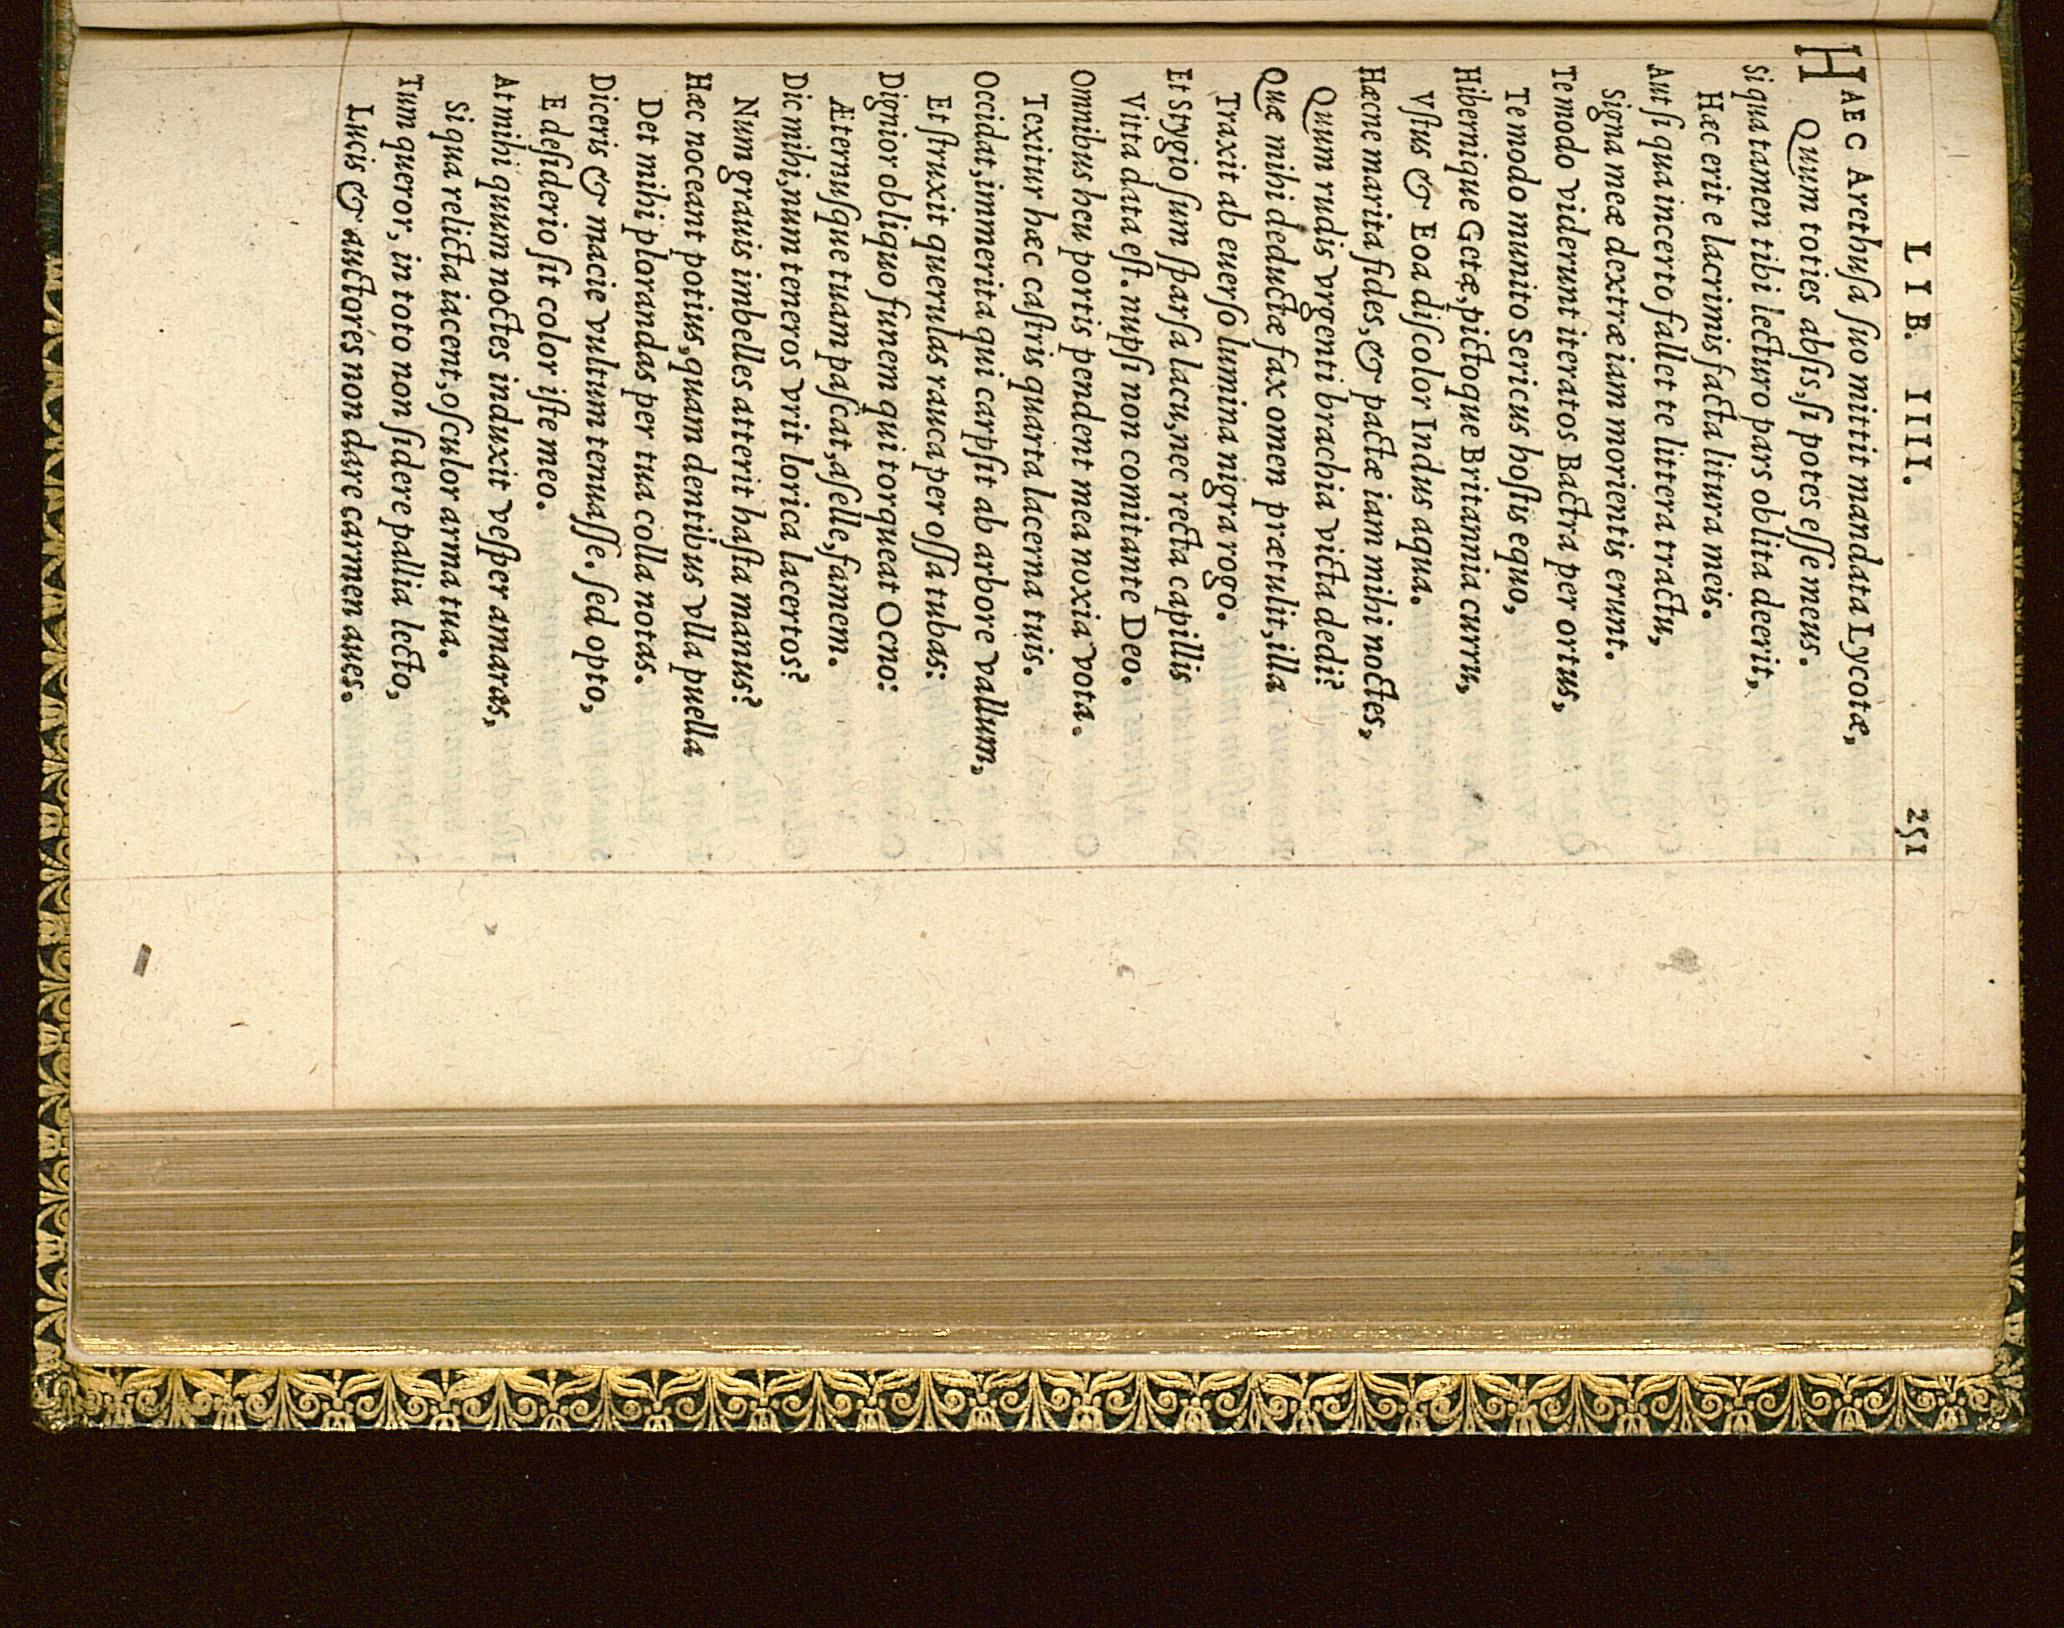 LIB. IIII. 251
HAEC Arethuſa ſuo mittit mandata Lycotæ,
Quum toties abſis, ſi potes eſſe meus.
Si qua tamen tibi lecturo pars oblita deerit,
Hæc erit e lacrimis facta litura meis.
Aut ſi qua incerto fallet te littera tractu,
Signa meæ dextræ iam morientis erunt.
Te modo viderunt iteratos Bactra per ortus,
Te modo munito Sericus hoſtis equo,
Hibernique Getæ, pictoque Britannia curru,
Vſtus & Eoa diſcolor Indus aqua.
Hæcne marita fides, & pactæ iam mihi noctes,
Quum rudis vrgenti brachia victa dedi?
Quæ mihi deductæ fax omen prætulit, illa
Traxit ab euerſo lumina nigra rogo.
Et Stygio ſum ſparſa lacu, nec recta capillis
Vitta data eſt. nupſi non comitante Deo.
Omnibus heu portis pendent mea noxia vota.
Texitur hæc caſtris quarta lacerna tuis.
Occidat, immerita qui carpſit ab arbore vallum,
Et ſtruxit querulas rauca per oſſa tubas:
Dignior obliquo funem qui torqueat Ocno:
Æternuſque tuam paſcat, aſelle, famem.
Dic mihi, num teneros vrit lorica lacertos?
Num grauis imbelles atterit haſta manus?
Hæc noceant potius, quam dentibus vlla puella
Det mihi plorandas per tua colla notas.
Diceris & macie vultum tenuaſſe. ſed opto,
E deſiderio ſit color iſte meo.
At mihi quum noctes induxit veſper amaras,
Si qua relicta iacent, oſculor arma tua.
Tum queror, in toto non ſidere pallia lecto,
Lucis & auctores non dare carmen aues.